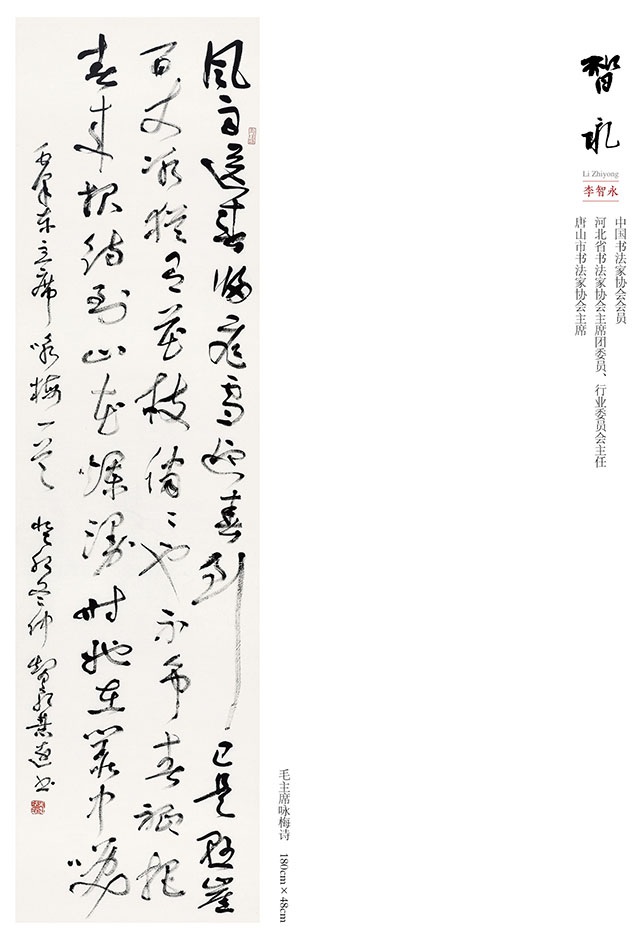 智永
Li Zhiyong
李智永
中国书法家协会会员
河北省书法家协会主席团委员、行业委员会主任
唐山市书法家协会主席
風雨送春歸飛雪迎春到已是懸崖
百丈冰猶有花枝俏〻也不争春祇把
春来报待到山花爛漫时她在叢中咲
毛泽东主席咏梅一首 癸卯冬仲 智永书
毛主席咏梅诗 180cm×48cm